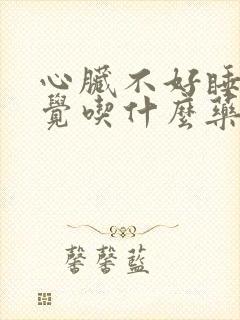 心臟不好睡
覺喫什麼藥
馨馨藍